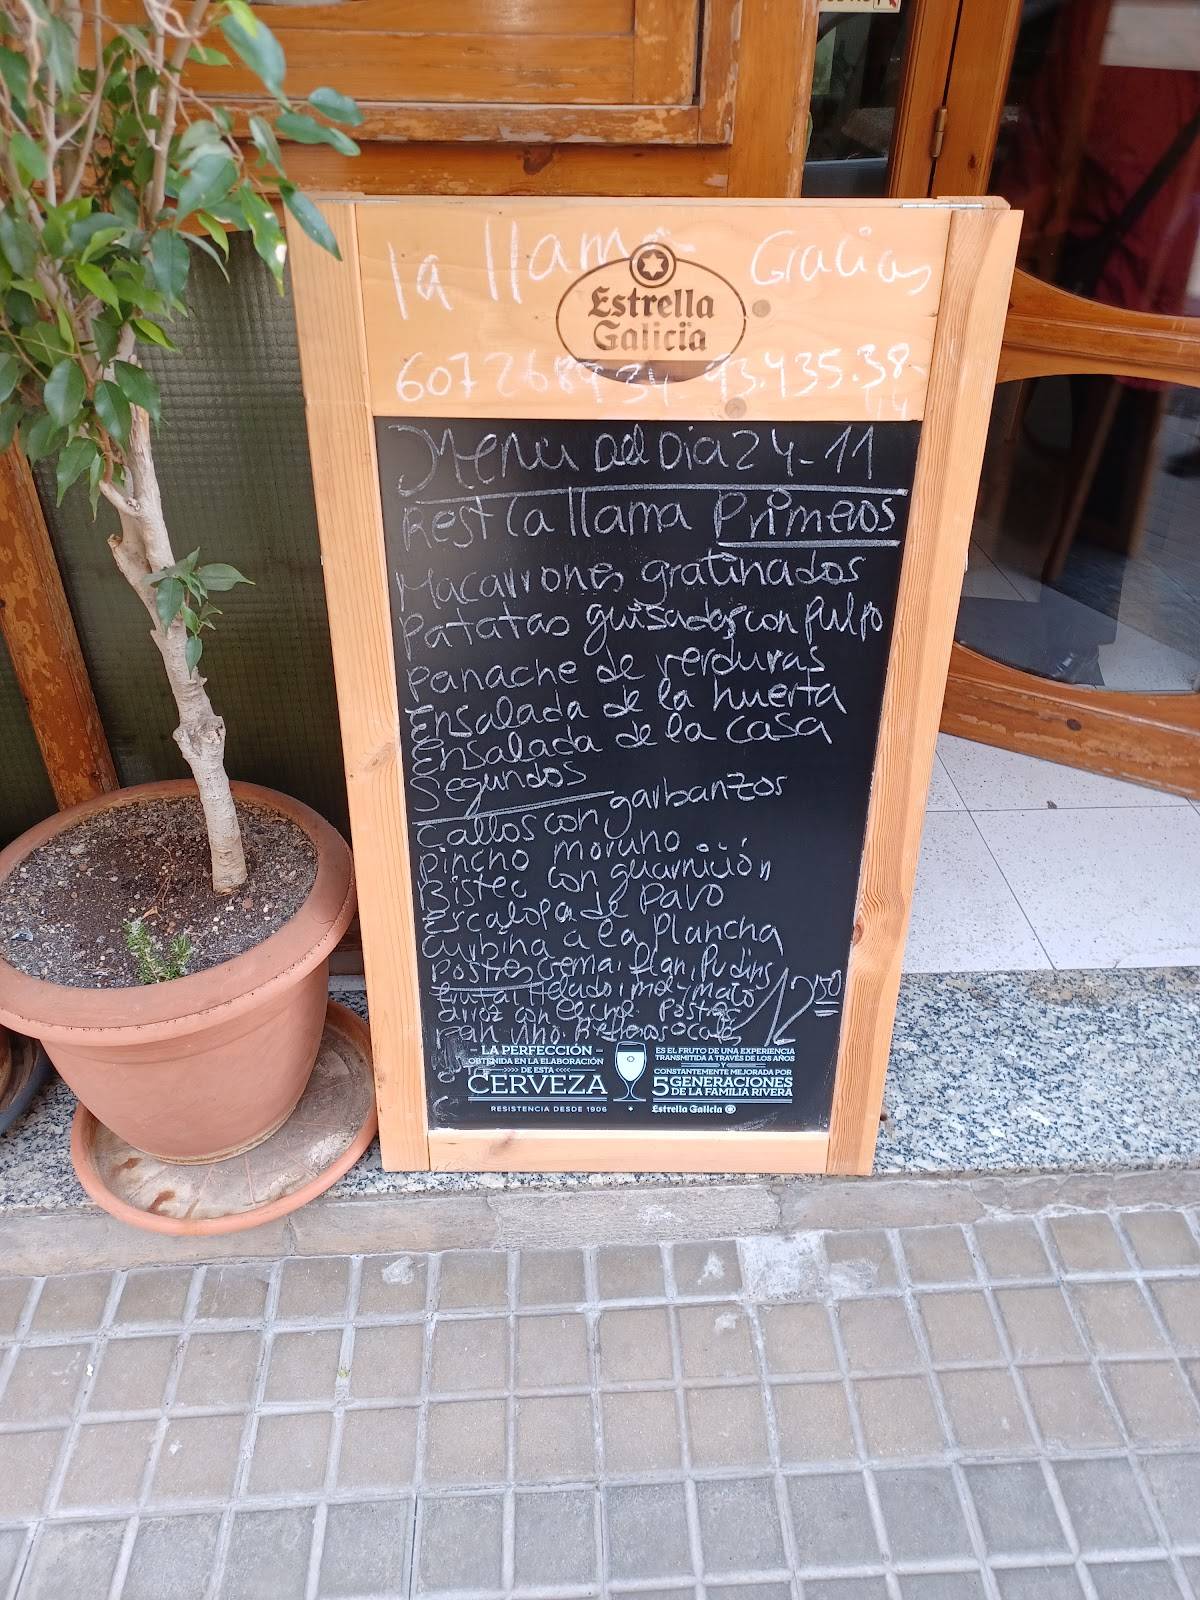 la llama Gracias
Estrella
Galicia
607268934-93.435.38-
44
Menu Del Dia 24-11
Rest La llama Primeros
Macarrones gratinados
Patatas guisadas con Pulpo
Panache de verduras
Ensalada de la huerta
Ensalada de la casa
Segundos
Callos con garbanzos
Pincho moruno
Bistec con guarnición
Escalopa de Pavo
Curbina a la Plancha
Postres Crema, flan, Pudins
fruta, Helado, mel-y-mato
arroz con leche. Postres 12,50
Pan vino. Refresco o Café
- LA PERFECCIÓN -
OBTENIDA EN LA ELABORACIÓN
DE ESTA
CERVEZA
RESISTENCIA DESDE 1906
ES EL FRUTO DE UNA EXPERIENCIA
TRANSMITIDA A TRAVÉS DE LOS AÑOS
Y
CONSTANTEMENTE MEJORADA POR
5 GENERACIONES
DE LA FAMILIA RIVERA
Estrella Galicia